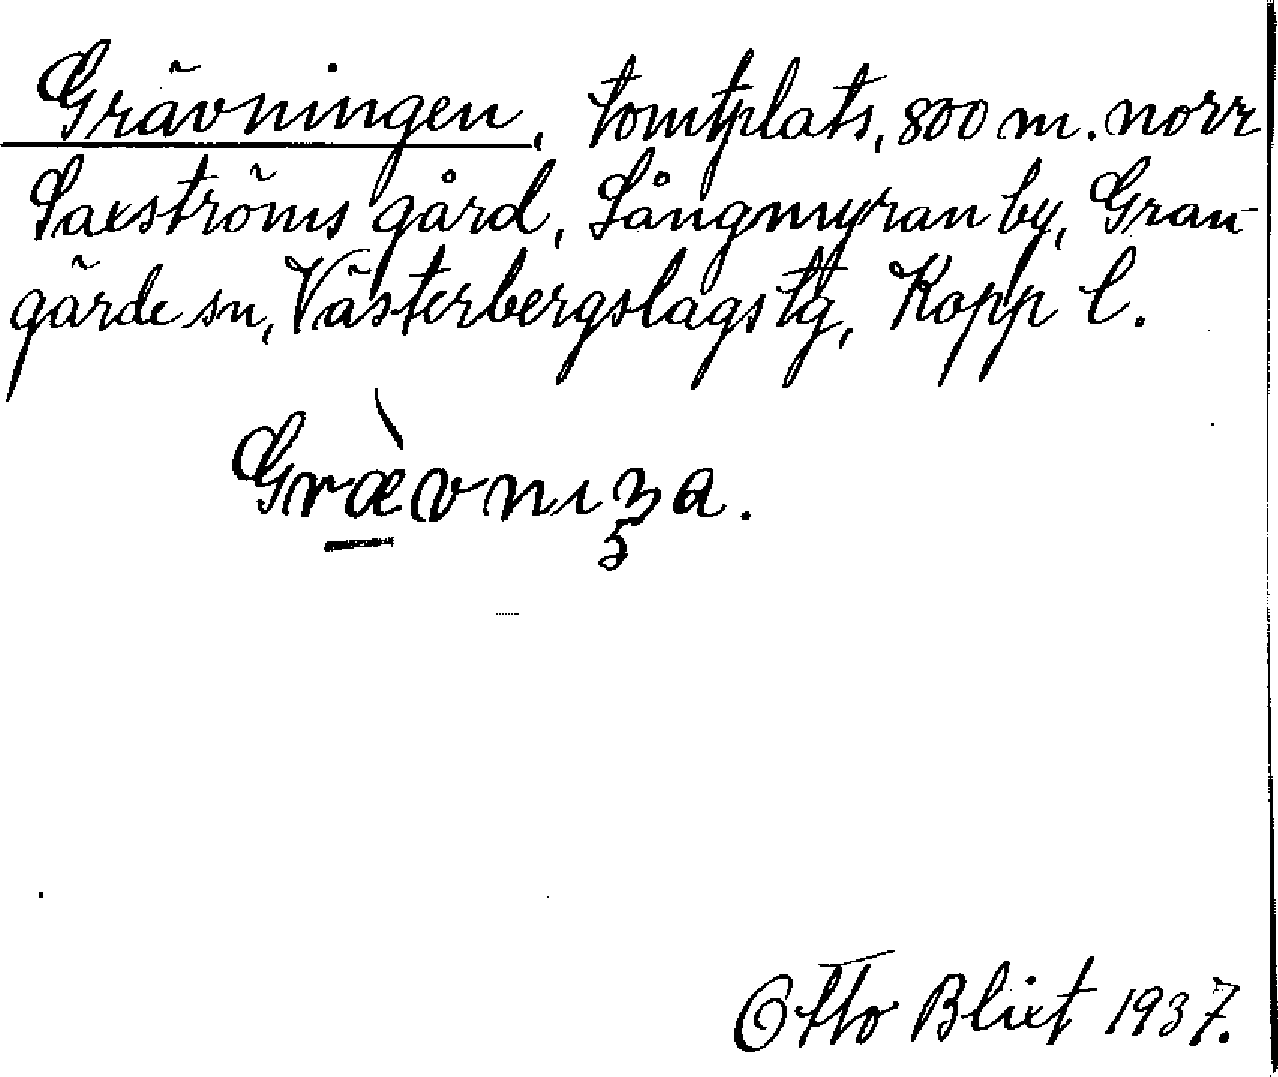 Grävningen, tomtplats, 800 m. norr
Saxströms gård, Långmyran by, Gran-
gärde sn, Västerbergslags tg, Kopp l.
Grævnıʒa.
Otto Blixt 1937.